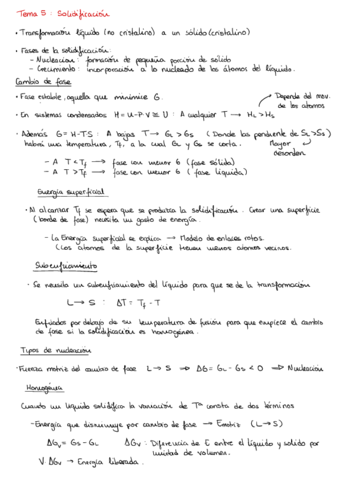 Tema 5: Solidificación
· Transformación líquido (no cristalino) a un sólido (cristalino)
· Fases de la solidificación:
- Nucleacion: formación de pequeña porción de sólido
- Crecimiento: incorporación a lo nucleado de los átomos del líquido.
Cambio de fase
· Fase estable, aquella que minimice G.
Depende del mov. de los atomos
· En sistemas condensados H = U + P·V ≅ U : A cualquier T → HL > Hs
· Además G = H - TS : A bajas T → GL > Gs (Donde las pendiente de SL > Ss)
habrá una temperatura, Tf, a la cual GL y Gs se corta.
Mayor desorden
- A T < Tf → fase con menor G (fase sólida)
- A T > Tf → fase con menor G (fase líquida)
Energía superficial
· Al alcanzar Tf se espera que se produzca la solidificación. Crear una superficie
(borde de fase) necesita un gasto de energía.
- La Energía superficial se explica → Modelo de enlaces rotos.
(Los átomos de la superficie tienen menos átomos vecinos.
Subenfriamiento
· Se necesita un subenfriamiento del líquido para que se de la transformación
L → S : ΔT = Tf - T
Enfriados por debajo de su temperatura de fusión para que empiece el cambio
de fase si la solidificacion es homogénea.
Tipos de nucleación
· Fuerza motriz del cambio de fase L → S ⇒ ΔG = GL - Gs < 0 ⇒ Nucleación
Homogénea
Cuando un líquido solidifica la variación de Tª consta de dos términos
- Energía que disminuye por cambio de fase → Emotriz (L → S)
ΔGv = Gs - GL ΔGv : Diferencia de E entre el líquido y solido por
unidad de volumen.
V·ΔGv → Energía liberada.